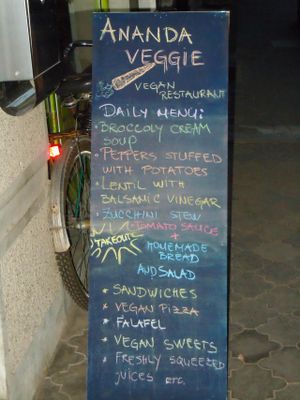 ANANDA
VEGGIE
VEGAN
RESTAURANT
DAILY MENU:
• BROCCOLY CREAM
SOUP
• PEPPERS STUFFED
WITH POTATOES
• LENTIL WITH
BALSAMIC VINEGAR
• ZUCCHINI STEW
TOMATO SAUCE
TAKEOUTS +
HOMEMADE
BREAD
AND SALAD
* SANDWICHES
* VEGAN PIZZA
* FALAFEL
* VEGAN SWEETS
* FRESHLY SQUEEZED
JUICES ETC.